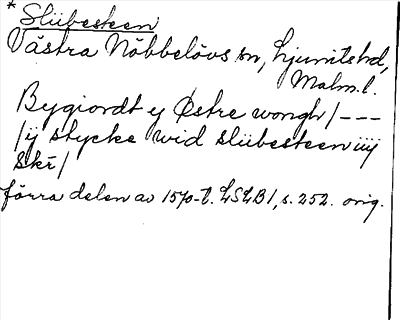 * Slübesteen
Västra Nöbbelövs sn, Ljunits hd,
Malm. l.
Bygiordt ej Østre wongh / ---
/ ij stycke wid slübesteen iiij
Skr /
förra delen av 1570-t. LSLB 1, s. 252. orig.